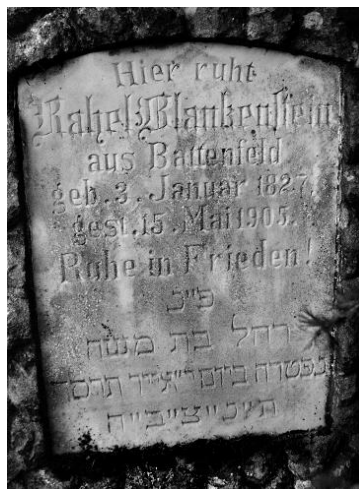 Hier ruht
Rahel Blankenstein
aus Battenfeld
geb. 3. Januar 1827.
gest. 15. Mai 1905.
Ruhe in Frieden!
פ״נ
רחל בת משה
נפטרה ביום י׳ אייר תרס״
ת״נ״צ״ב״ה